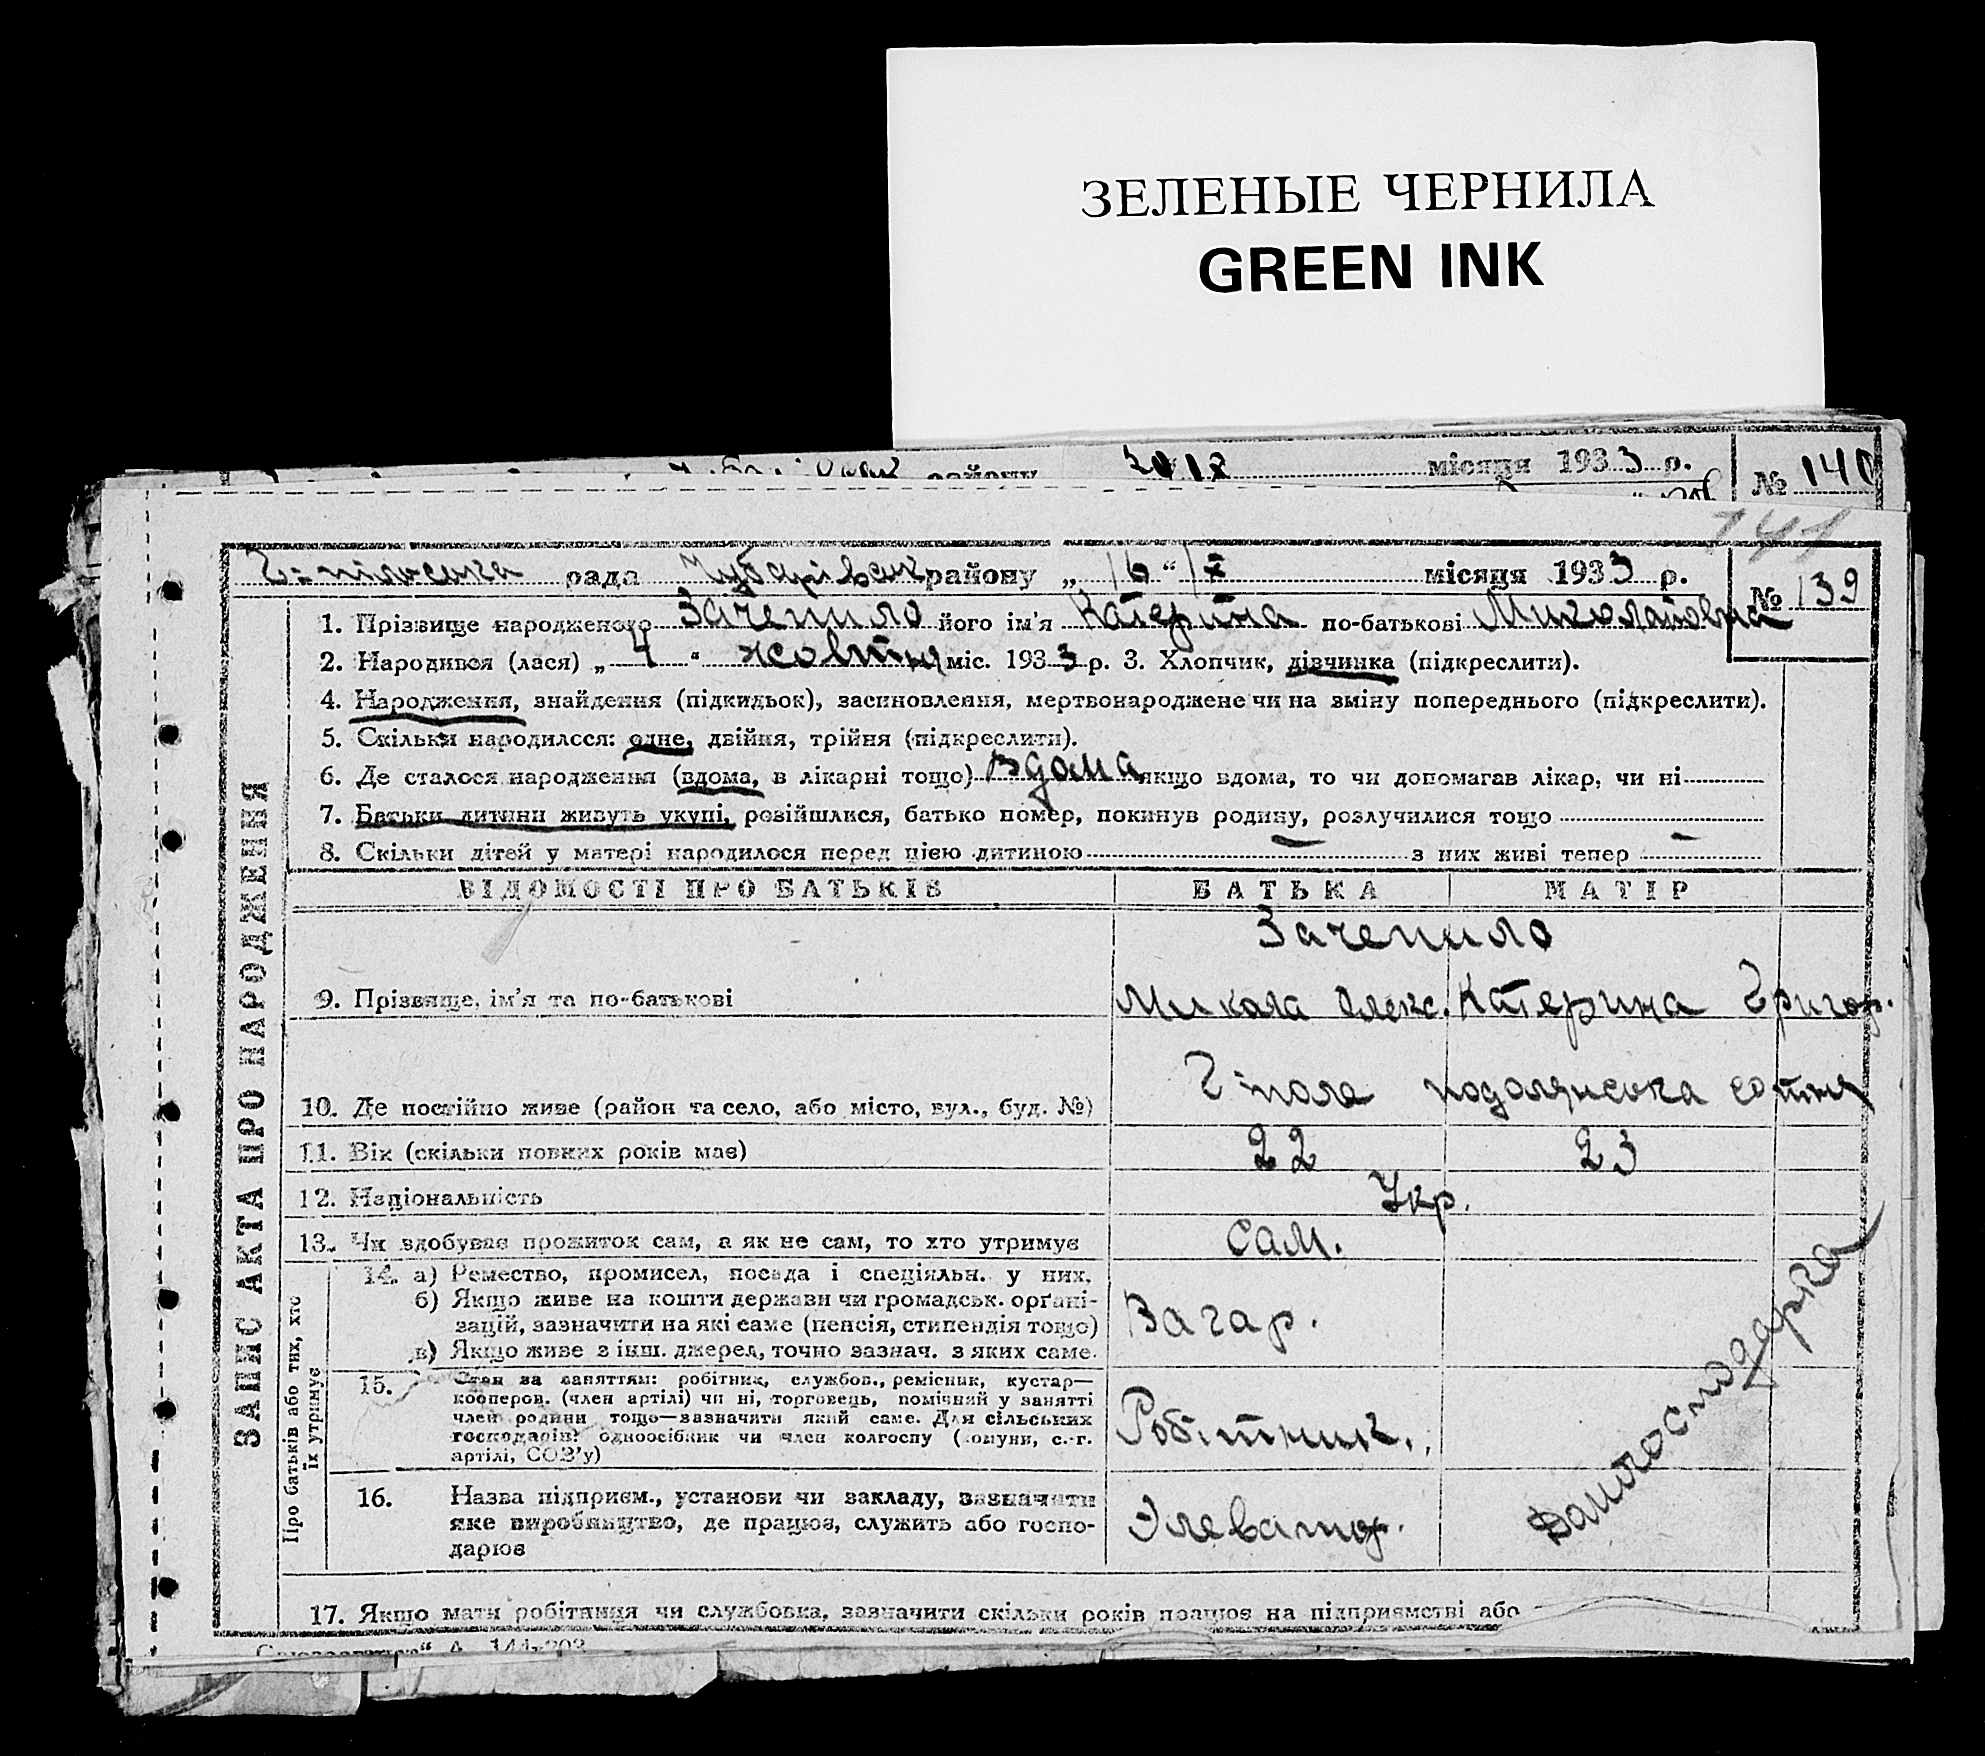 ЗЕЛЕНЫЕ ЧЕРНИЛА
GREEN INK
району місяця 1933 р. № 140
141
Г=пільська рада Чубарівськ району „ 16 “ / X місяця 1933 р. № 139
ЗАПИС АКТА ПРО НАРОДЖЕННЯ
1. Прізвище народженого Зачепило його ім'я Катерина по-батькові Миколаївна
2. Народився (лася) „ 4 “ жовтня міс. 1933 р. 3. Хлопчик, дівчинка (підкреслити).
4. Народження, знайдення (підкидьок), засиновлення, мертвонароджене чи на зміну попереднього (підкреслити).
5. Скільки народилося: одне, двійня, трійня (підкреслити).
6. Де сталося народження (вдома, в лікарні тощо) Вдома якщо вдома, то чи допомагав лікар, чи ні
7. Батьки дитини живуть укупі, розійшлися, батько помер, покинув родину, розлучилися тощо
8. Скільки дітей у матері народилося перед цією дитиною — з них живі тепер —
ВІДОМОСТІ ПРО БАТЬКІВ БАТЬКА МАТІР
Зачепило
9. Прізвище, ім'я та по-батькові Микола Олекс. Катерина Григор.
10. Де постійно живе (район та село, або місто, вул., буд. №) Г поле подолянська сотня
11. Вік (скільки повних років має) 22 23
12. Національність Укр.
13. Чи здобуває прожиток сам, а як не сам, то хто утримує сам.
Про батьків або тих, хто їх утримує
14. а) Ремество, промисел, посада і спеціяльн. у них,
б) Якщо живе на кошти держави чи громадськ. орґані-
зацій, зазначити на які саме (пенсія, стипендія тощо) Вагар.
в) Якщо живе з інш. джерел, точно зазнач. з яких саме.
15. Стан за заняттям: робітник, службов., ремісник, кустар—
кооперов. (член артілі) чи ні, торговець, помічний у занятті
член родини тощо—зазначити який саме. Для сільських
господарів: одноосібник чи член колгоспу (комуни, с.-г.
артілі, СОЗ'у) Робітник.
Домогосподарка
16. Назва підприєм., установи чи закладу, зазначити
яке виробництво, де працює, служить або госпо-
дарює Элеватор.
17. Якщо мати робітниця чи службовка, зазначити скільки років працює на підприємстві або